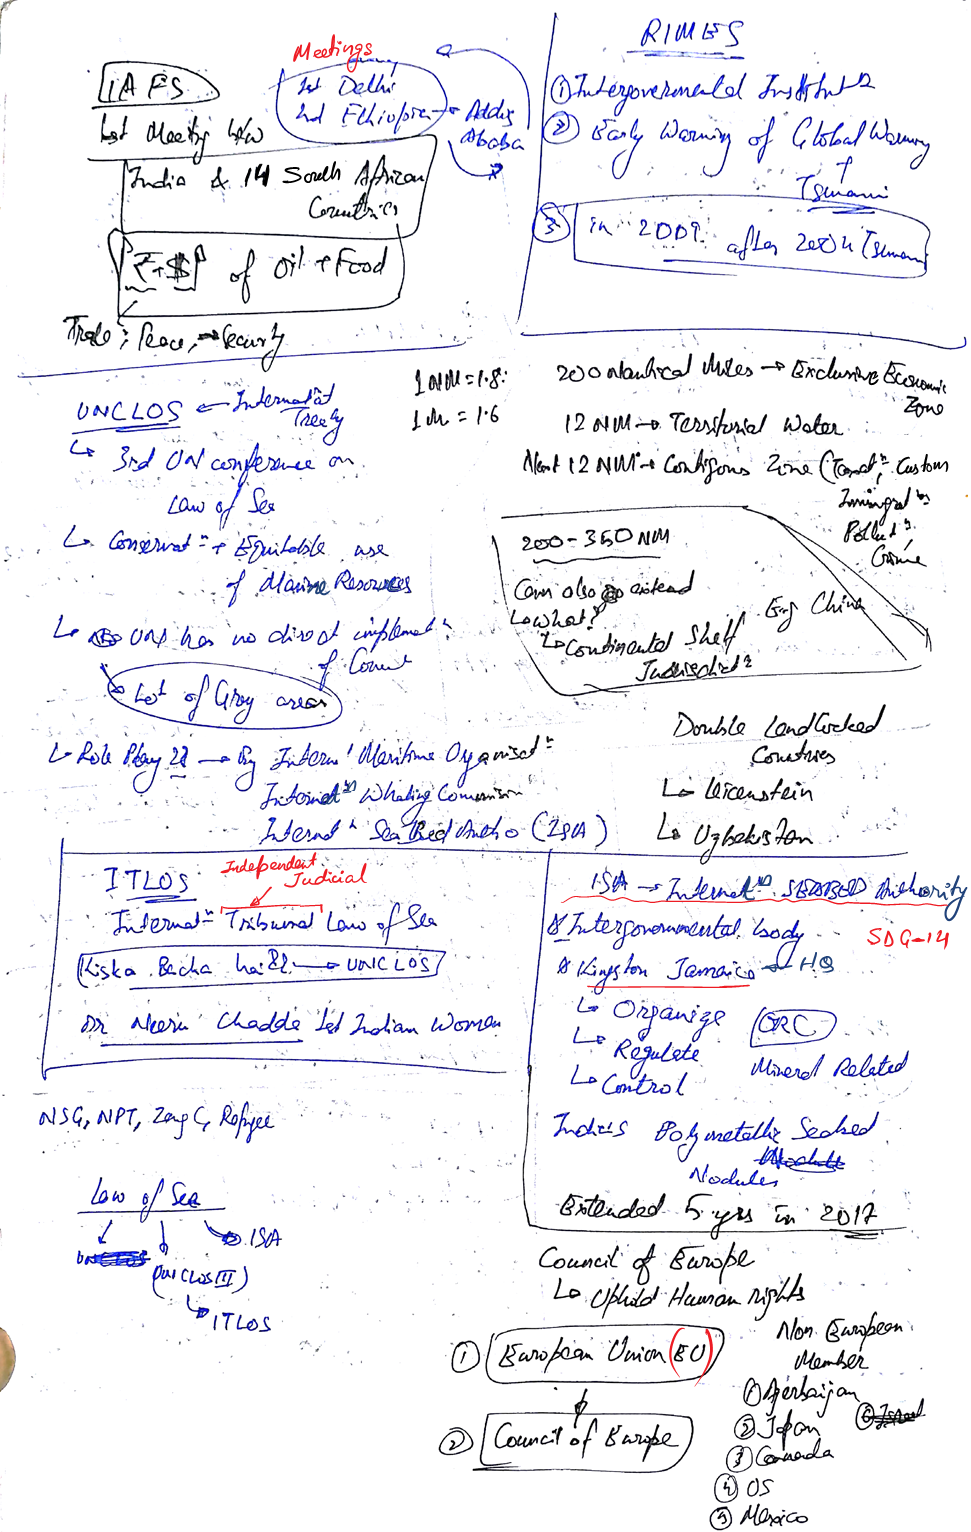 IAFS
Meetings
1st Delhi
2nd Ethiopia → Addis
Ababa
1st Meeting b/w
India & 14 South African
Countries
₹+$ of Oil + Food
Trade, Peace, Security
RIMES
① Intergovernmental Institutn
② Early Warning of Global Warming
+
Tsunami
③ in 2009 after 2004 Tsunami
UNCLOS ← Internat
Treaty
↳ 3rd UN conference on
Law of Sea
↳ Conservatn + Equitable use
of Marine Resources
↳ UN has no direct implementn
of
Lot of Grey areas
↳ Role Play → By Intern' Maritime Organisatn
Internatn Whaling Commission
Internatn Sea Bed Autho (ISA)
1 NM = 1.8
1 M = 1.6
200 Nautical Miles → Exclusive Economic
Zone
12 NM → Territorial Water
Next 12 NM → Contigous Zone (Taxatn, Custom
Immigratn
Pollutn
Crime
200-350 NM
Can also extend
↳ What?
↳ Continental Shelf
Jurisdictn
Eg China
Double LandLocked
Countries
↳ Licenstein
↳ Uzbekistan
ITLOS
Independent
Judicial
Internatn Tribunal Law of Sea
Kiska Bacha hai?? → UNCLOS
Dr Neeru Chadda 1st Indian Woman
ISA → Internatn SEABED Authority
Intergovernmental body
SDG-14
Kingston Jamaica → HQ
↳ Organize
↳ Regulate
↳ Control
Mineral Related
India's Polymetallic Seabed
Nodules
Extended 5 yrs in 2017
NSG, NPT, Refugee
Law of Sea
ISA
UNCLOS III
↳ ITLOS
Council of Europe
↳ Uphold Human rights
① European Union (EU)
② Council of Europe
Non European
Member
① Azerbaijan
② Japan
③ Canada
④ US
⑤ Mexico